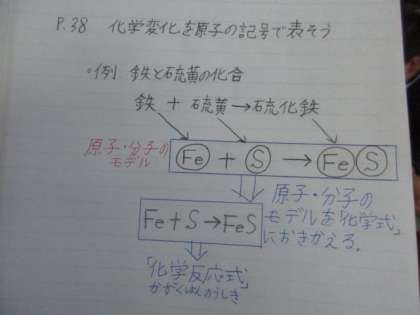 P.38 化学変化を原子の記号で表そう
◦例 鉄と硫黄の化合
鉄 + 硫黄→硫化鉄
原子・分子の
モデル
Fe + S → Fe S
原子・分子の
モデルを「化学式」
におきかえる。
Fe+S→FeS
「化学反応式」
かがくはんのうしき